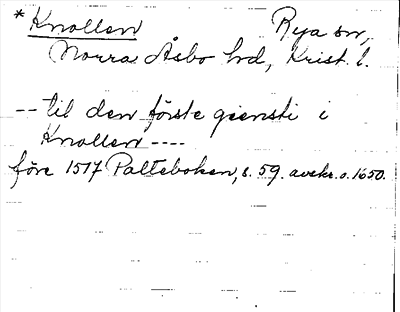 * Knollen Rya sn,
Norra Åsbo hd, Krist. l.
-- til den förste giensti i
Knollen ----
före 1517 Palteboken, s. 59. avskr. o. 1650.